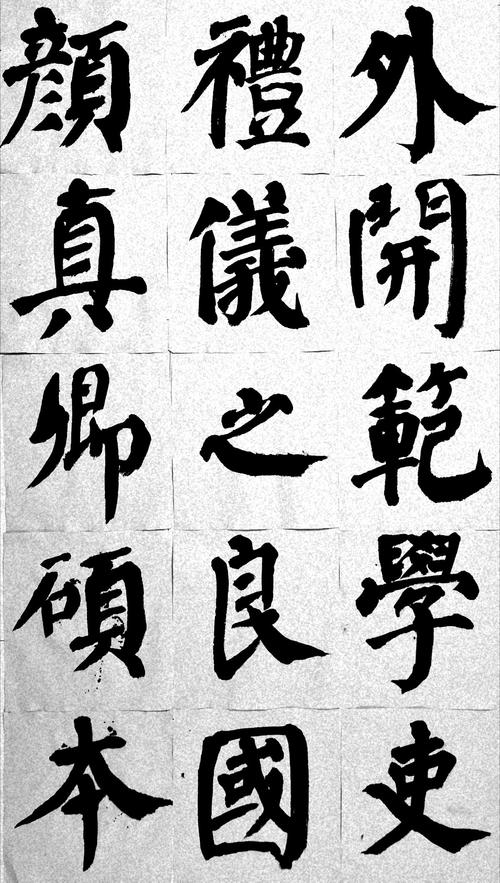 外開範學吏
禮儀之良國
顏真卿碩本